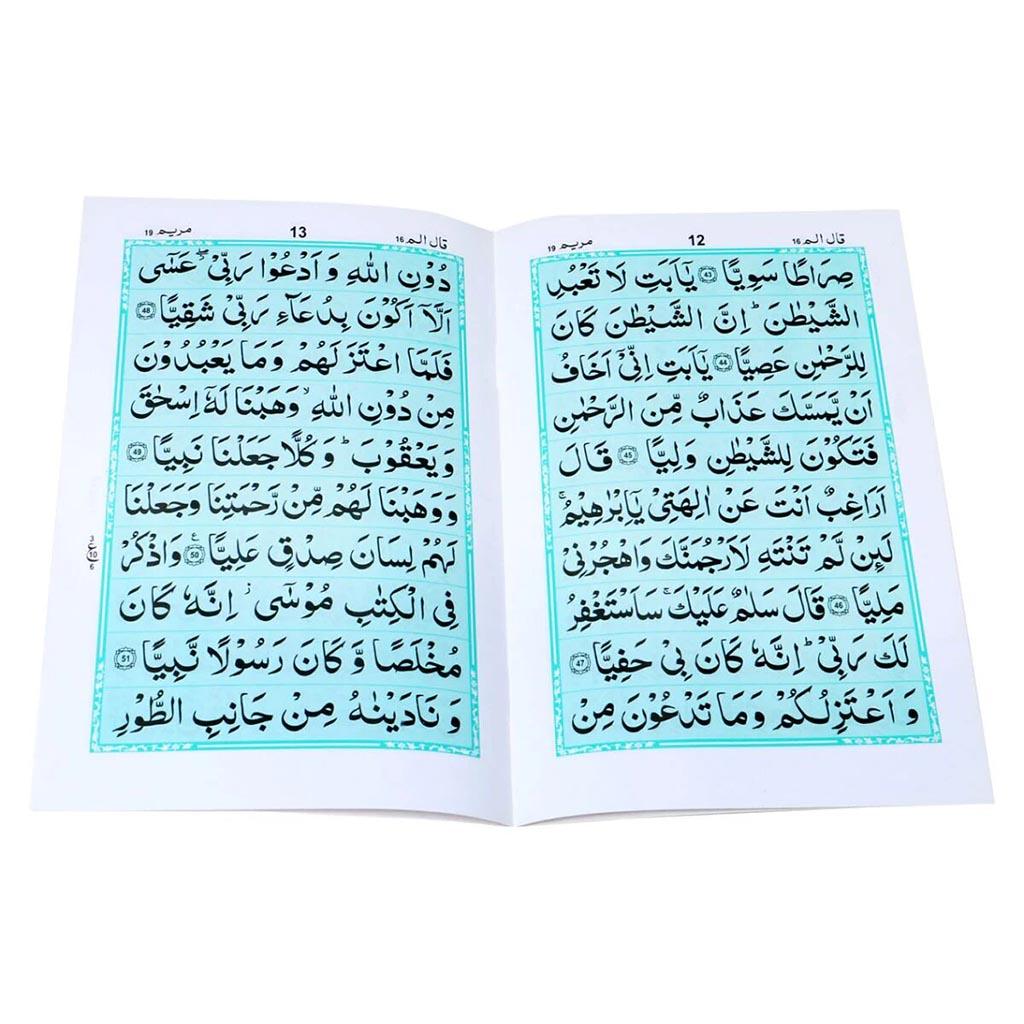 قال الم 16
12
مريم 19
صِرَاطًا سَوِيًّا ۝43 يٰٓاَبَتِ لَا تَعْبُدِ
الشَّيْطٰنَ ؕ اِنَّ الشَّيْطٰنَ كَانَ
لِلرَّحْمٰنِ عَصِيًّا ۝44 يٰٓاَبَتِ اِنِّيْۤ اَخَافُ
اَنْ يَّمَسَّكَ عَذَابٌ مِّنَ الرَّحْمٰنِ
فَتَكُوْنَ لِلشَّيْطٰنِ وَلِيًّا ۝45 قَالَ
اَرَاغِبٌ اَنْتَ عَنْ اٰلِهَتِيْ يٰۤاِبْرٰهِيْمُ ۚ
لَئِنْ لَّمْ تَنْتَهِ لَاَرْجُمَنَّكَ وَاهْجُرْنِيْ
مَلِيًّا ۝46 قَالَ سَلٰمٌ عَلَيْكَ ۚ سَاَسْتَغْفِرُ
لَكَ رَبِّيْ ؕ اِنَّهٗ كَانَ بِيْ حَفِيًّا ۝47
وَ اَعْتَزِلُكُمْ وَمَا تَدْعُوْنَ مِنْ
قال الم 16
13
مريم 19
دُوْنِ اللّٰهِ وَ اَدْعُوْا رَبِّيْ ۖ عَسٰۤى
اَلَّاۤ اَكُوْنَ بِدُعَآءِ رَبِّيْ شَقِيًّا ۝48
فَلَمَّا اعْتَزَلَهُمْ وَمَا يَعْبُدُوْنَ
مِنْ دُوْنِ اللّٰهِ ۙ وَهَبْنَا لَهٗۤ اِسْحٰقَ
وَيَعْقُوْبَ ؕ وَكُلًّا جَعَلْنَا نَبِيًّا ۝49
وَوَهَبْنَا لَهُمْ مِّنْ رَّحْمَتِنَا وَجَعَلْنَا
لَهُمْ لِسَانَ صِدْقٍ عَلِيًّا ۝50 ع وَاذْكُرْ
3 ع 10 6
فِي الْكِتٰبِ مُوْسٰۤى ؗ اِنَّهٗ كَانَ
مُخْلَصًا وَّكَانَ رَسُوْلًا نَّبِيًّا ۝51
وَنَادَيْنٰهُ مِنْ جَانِبِ الطُّوْرِ